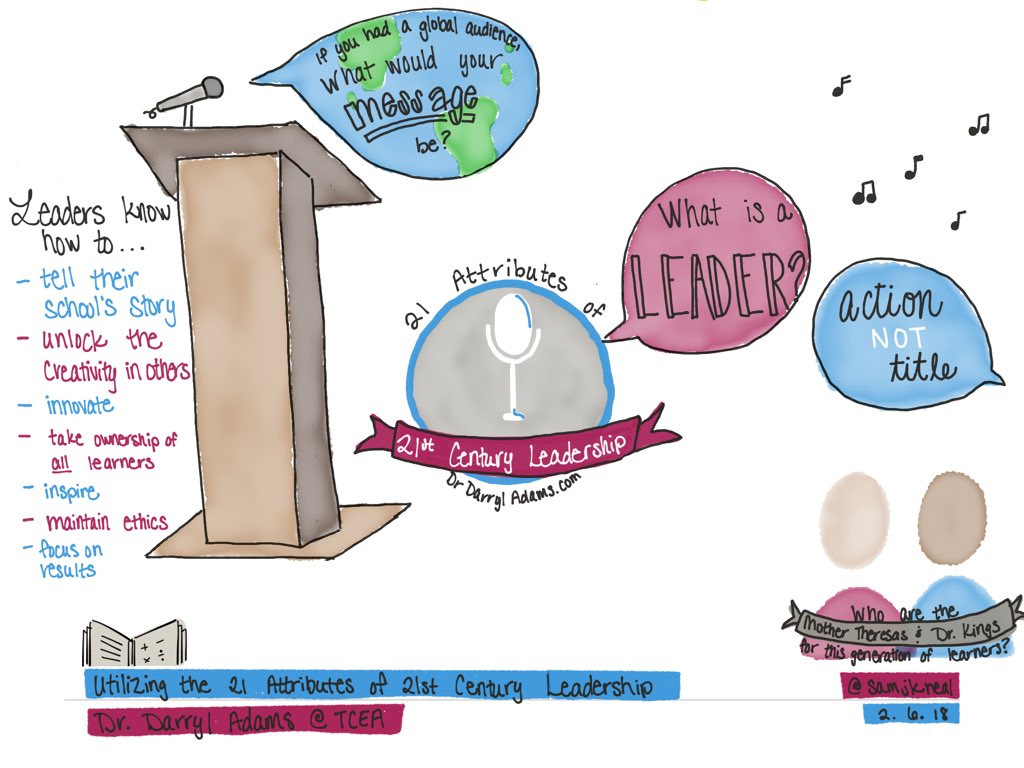 if you had a global audience,
what would your
message
be?
Leaders know
how to...
- tell their
school's story
- unlock the
Creativity in others
- innovate
- take ownership of
all learners
- inspire
- maintain ethics
- focus on
results
21 Attributes of
21st Century Leadership
Dr Darryl Adams.com
What is a
LEADER?
action
NOT
title
Who are the
Mother Theresas & Dr. Kings
for this generation of learners?
Utilizing the 21 Attributes of 21st Century Leadership
Dr. Darryl Adams @ TCEA
@samjkneal
2.6.18